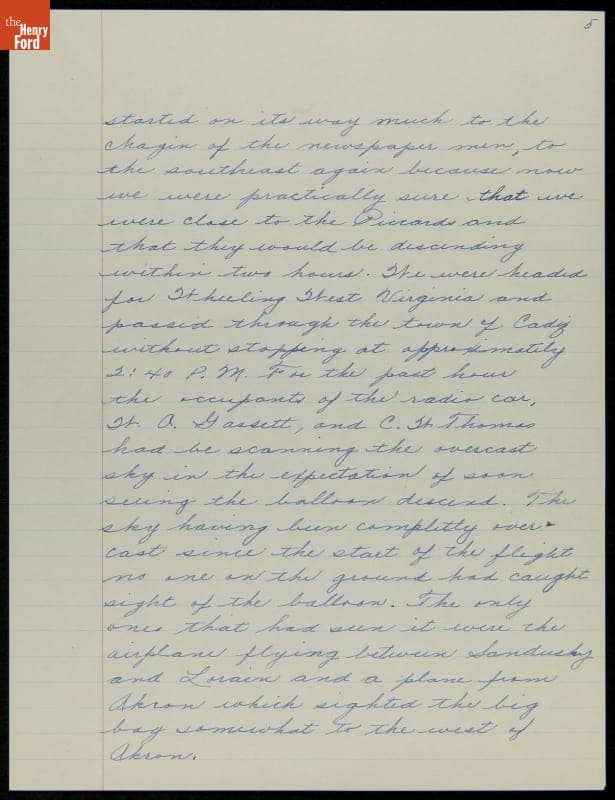 the
Henry
Ford
5
started on its way much to the
chagin of the newspaper men, to
the southeast again because now
we were practically sure that we
were close to the Piccards and
that they would be descending
within two hours. We were headed
for Wheeling West Virginia and
passed through the town of Cadiz
without stopping at approximately
2:40 P.M. For the past hour
the occupants of the radio car,
W. A. Gassett, and C. W. Thomas
had be scanning the overcast
sky in the expectation of soon
seeing the balloon descend. The
sky having been completly over-
cast since the start of the flight
no one on the ground had caught
sight of the balloon. The only
ones that had seen it were the
airplane flying between Sandusky
and Lorain and a plane from
Akron which sighted the big
bag somewhat to the west of
Akron.